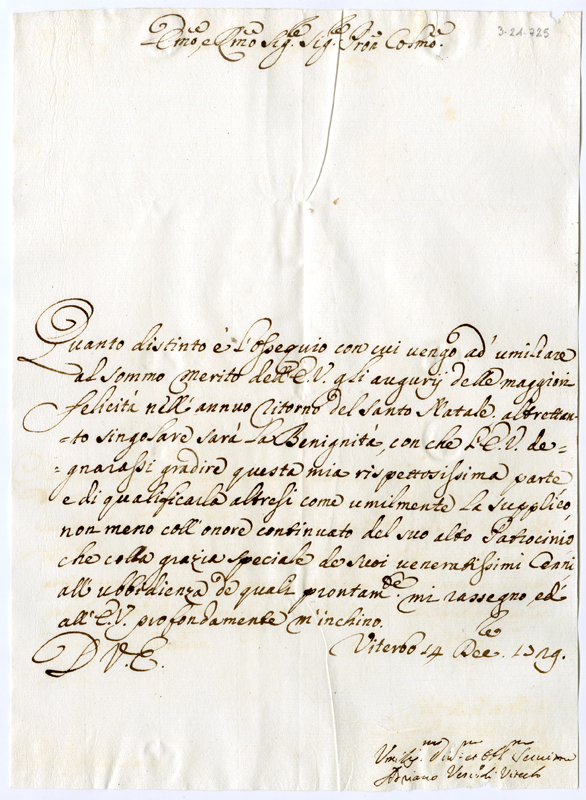 Emo, e Rmo Sig.re Sig.re Pron Colmo.
3-21-725
Quanto distinto è l'ossequio con cui vengo ad' umiliare
al sommo merito dell'E.V. gli augurij delle maggiori
felicità nell'annuo ritorno del Santo Natale, altrettan-
-to singolare sarà la Benignità, con che l'E.V. de=
=gnarassi gradire questa mia rispettosissima parte
e di qualificarla altresì come umilmente la supplico,
non meno coll'onore continuato del suo alto Patrocinio
che colla grazia speciale de suoi veneratissimi Cenni
all'ubbidienza de quali prontam.te mi rassegno, ed'
all'E.V. profondamente m'inchino.
Viterbo 14 Dec.re 1729.
D V E.
Umiliss.mo divot.mo et obl.mo Servitore
Adriano Vescovo di Viterbo